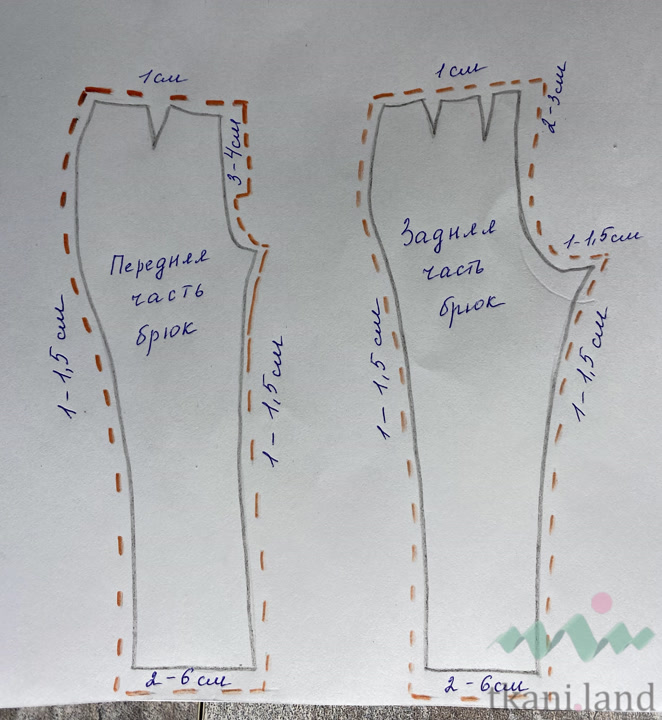 1см
3-4см
Передняя
часть
брюк
1-1,5см
1-1,5см
2-6см
1см
2-3см
Задняя
часть
брюк
1-1,5см
1-1,5см
1-1,5см
2-6см
tkani.land